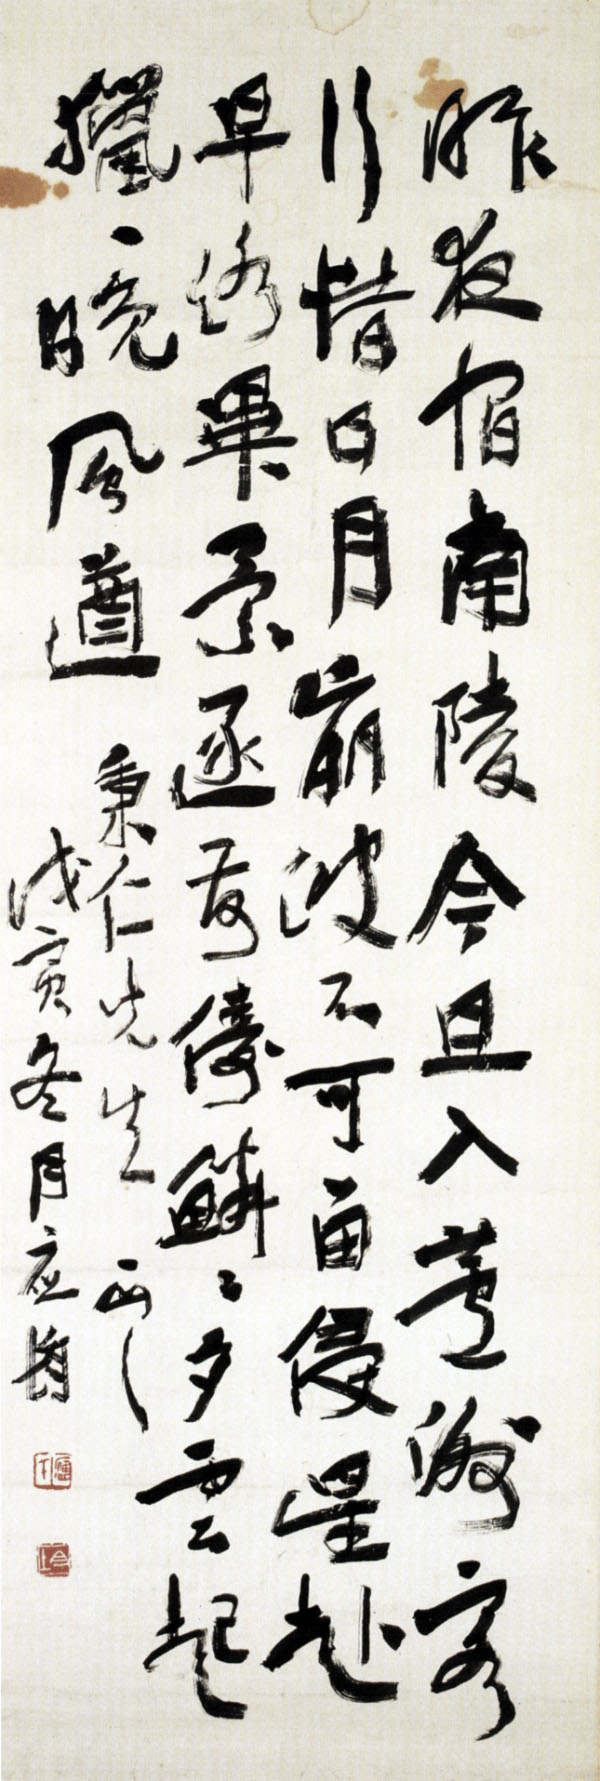 昨夜宿南陵今旦入蘆洲客
行惜日月崩波不可留侵星赴
早路畢景逐前儔鱗々夕雲起
獵々晚風遒 秉仁先生正之
戊寅冬月应均